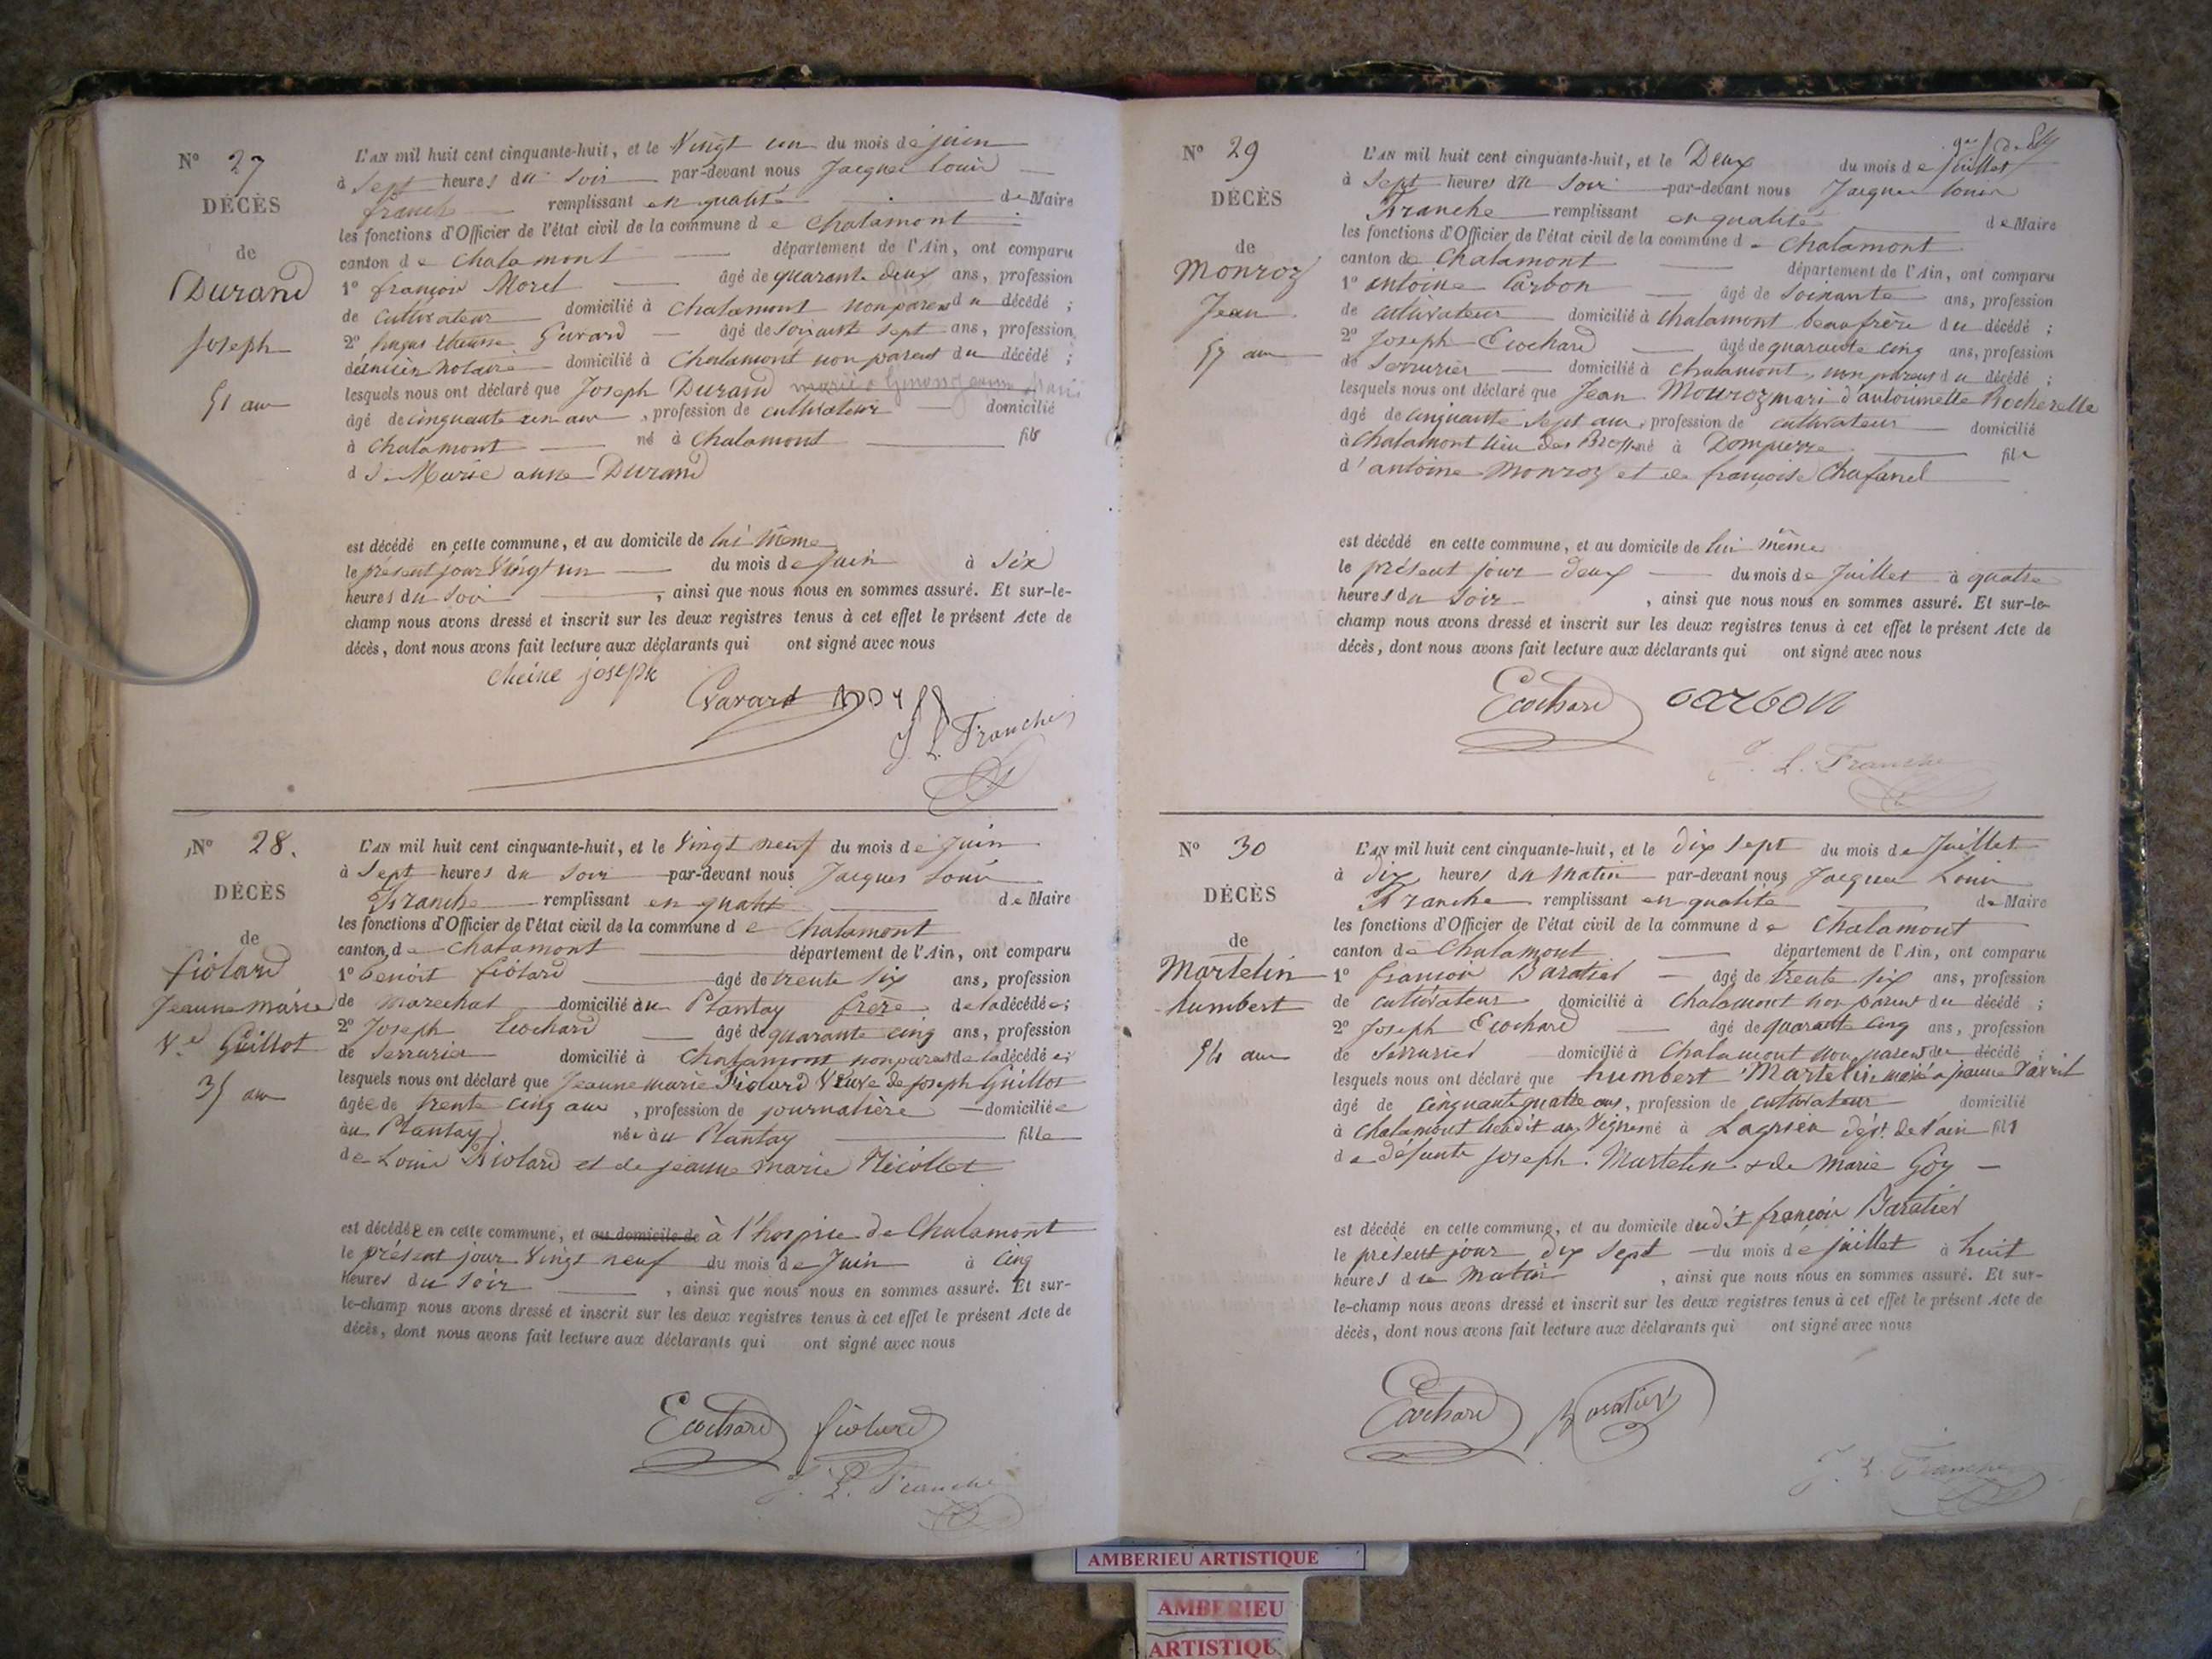 N° 27
DÉCÈS
de
Durand
Joseph
51 ans
L'AN mil huit cent cinquante-huit, et le Vingt un du mois de juin
à Sept heures du Soir par-devant nous Jacques Louis
franche remplissant en qualité de Maire
les fonctions d'Officier de l'état civil de la commune de Chalamont
canton de Chalamont département de l'Ain, ont comparu
1° françois Morel âgé de quarante deux ans, profession
de Cultivateur domicilié à Chalamont non parent du décédé ;
2° Gavard âgé de Soixante Sept ans, profession
Notaire domicilié à Chalamont non parent du décédé ;
lesquels nous ont déclaré que Joseph Durand
âgé de cinquante un ans, profession de cultivateur domicilié
à Chalamont né à Chalamont fils
de Marie anne Durand
est décédé en cette commune, et au domicile de lui même
le présent jour Vingt un du mois de Juin à Six
heures du Soir, ainsi que nous nous en sommes assuré. Et sur-le-
champ nous avons dressé et inscrit sur les deux registres tenus à cet effet le présent Acte de
décès, dont nous avons fait lecture aux déclarants qui ont signé avec nous
joseph
Gavard
J. L. Franche
N° 28.
DÉCÈS
de
fiolard
Jeanne marie
Ve Guillot
35 ans
L'AN mil huit cent cinquante-huit, et le Vingt neuf du mois de Juin
à Sept heures du Soir par-devant nous Jacques Louis
Franche remplissant en qualité de Maire
les fonctions d'Officier de l'état civil de la commune de Chalamont
canton de Chalamont département de l'Ain, ont comparu
1° benoit fiolard âgé de trente six ans, profession
de marechal domicilié au Plantay frere de la décédée ;
2° Joseph Ecochard âgé de quarante cinq ans, profession
de Serrurier domicilié à Chalamont non parent de la décédée ;
lesquels nous ont déclaré que Jeanne marie Fiolard Veuve de Joseph Guillot
âgée de trente cinq ans, profession de journalière domiciliée
au Plantay née au Plantay fille
de Louis Fiolard et de jeanne marie Nicollet
est décédée en cette commune, et au domicile de à l'hospice de Chalamont
le présent jour Vingt neuf du mois de Juin à Cinq
heures du Soir, ainsi que nous nous en sommes assuré. Et sur-
le-champ nous avons dressé et inscrit sur les deux registres tenus à cet effet le présent Acte de
décès, dont nous avons fait lecture aux déclarants qui ont signé avec nous
Ecochard fiolard
J. L. Franche
N° 29
DÉCÈS
de
Monroz
Jean
57 ans
L'AN mil huit cent cinquante-huit, et le Deux du mois de Juillet
à Sept heures du Soir par-devant nous Jacques Louis
Franche remplissant en qualité de Maire
les fonctions d'Officier de l'état civil de la commune de Chalamont
canton de Chalamont département de l'Ain, ont comparu
1° antoine Carbon âgé de Soixante ans, profession
de cultivateur domicilié à Chalamont beaufrère du décédé ;
2° Joseph Ecochard âgé de quarante cinq ans, profession
de Serrurier domicilié à Chalamont, non parent du décédé ;
lesquels nous ont déclaré que Jean Monroz mari d'antoinette Rocherelle
âgé de Cinquante Sept ans, profession de cultivateur domicilié
à Chalamont lieu des né à Dompierre fils
d'antoine Monroz et de françoise Chafanel
est décédé en cette commune, et au domicile de lui même
le présent jour deux du mois de Juillet à quatre
heures du Soir, ainsi que nous nous en sommes assuré. Et sur-le-
champ nous avons dressé et inscrit sur les deux registres tenus à cet effet le présent Acte de
décès, dont nous avons fait lecture aux déclarants qui ont signé avec nous
Ecochard carbon
J. L. Franche
N° 30
DÉCÈS
de
Martelin
humbert
54 ans
L'AN mil huit cent cinquante-huit, et le dix sept du mois de Juillet
à dix heures du Matin par-devant nous Jacques Louis
Franche remplissant en qualité de Maire
les fonctions d'Officier de l'état civil de la commune de Chalamont
canton de Chalamont département de l'Ain, ont comparu
1° françois Baratier âgé de trente six ans, profession
de cultivateur domicilié à Chalamont non parent du décédé ;
2° Joseph Ecochard âgé de quarante cinq ans, profession
de Serrurier domicilié à Chalamont non parent du décédé ;
lesquels nous ont déclaré que humbert Martelin marié a jeanne
âgé de cinquante quatre ans, profession de cultivateur domicilié
à Chalamont lieudit au né à Lagnieu dépt de l'ain fils
de défunts joseph Martelin & de Marie Goy
est décédé en cette commune, et au domicile dudit françois Baratier
le présent jour dix Sept du mois de juillet à huit
heures du Matin, ainsi que nous nous en sommes assuré. Et sur-
le-champ nous avons dressé et inscrit sur les deux registres tenus à cet effet le présent Acte de
décès, dont nous avons fait lecture aux déclarants qui ont signé avec nous
Ecochard Baratier
J. L. Franche
AMBERIEU ARTISTIQUE
AMBERIEU
ARTISTIQUE